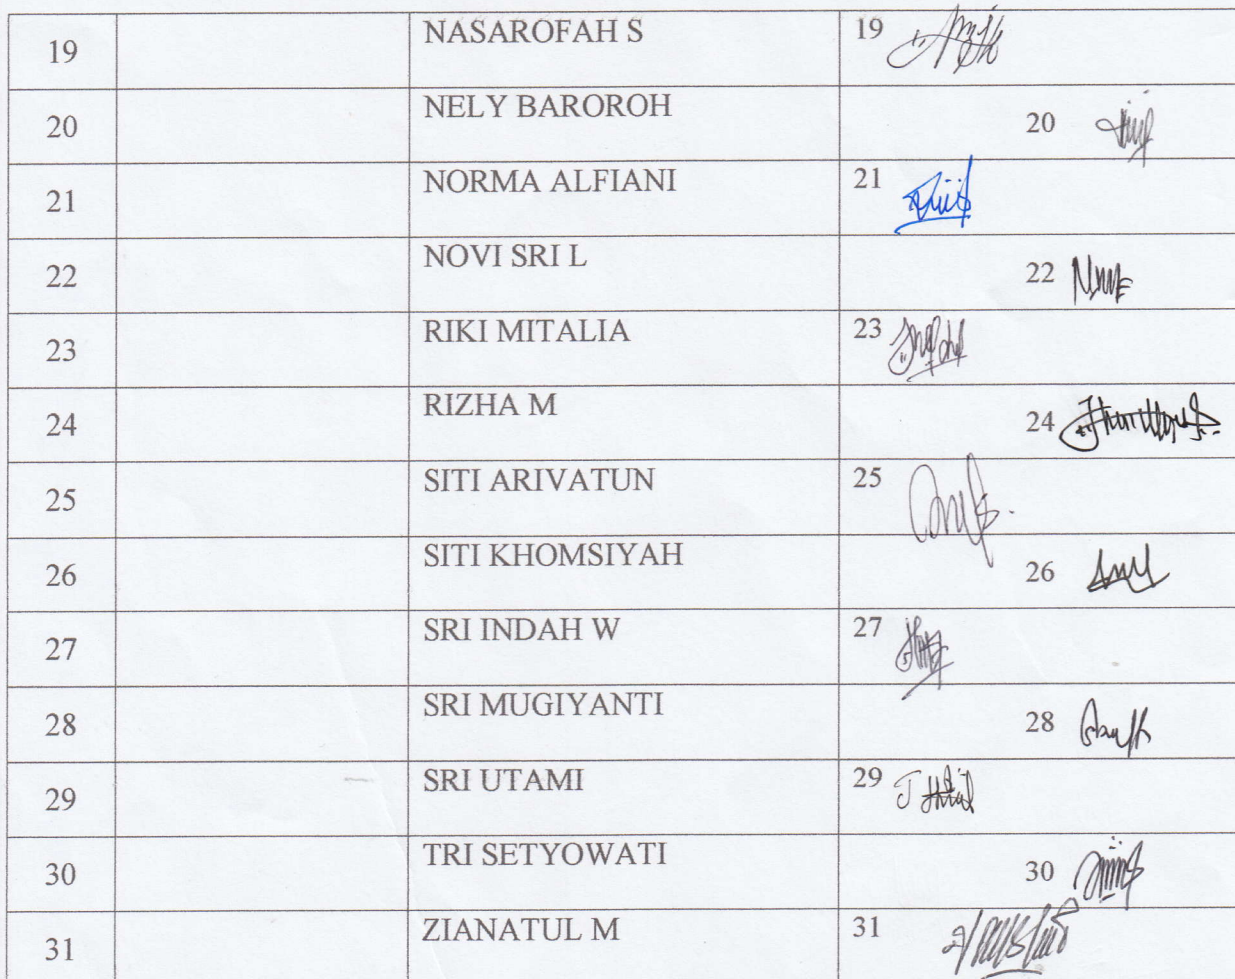 19 NASAROFAH S 19
20 NELY BAROROH 20
21 NORMA ALFIANI 21
22 NOVI SRI L 22
23 RIKI MITALIA 23
24 RIZHA M 24
25 SITI ARIVATUN 25
26 SITI KHOMSIYAH 26
27 SRI INDAH W 27
28 SRI MUGIYANTI 28
29 SRI UTAMI 29
30 TRI SETYOWATI 30
31 ZIANATUL M 31